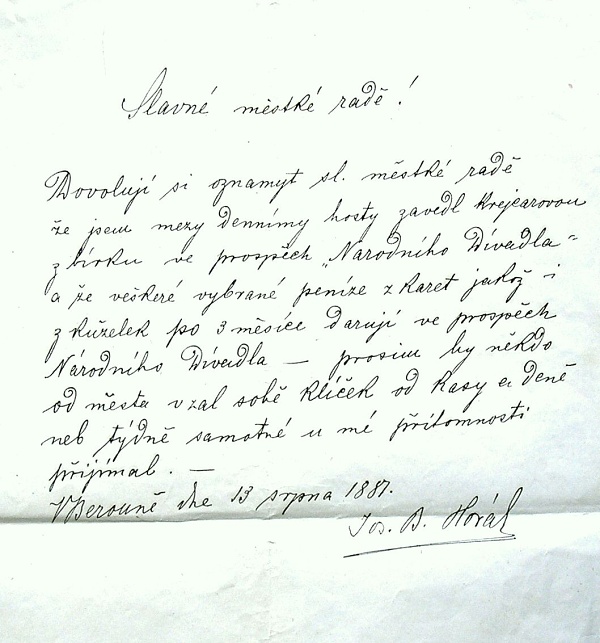 Slavné městké radě!
Dovolují si oznamyt sl. městké radě
že jsem mezy dennímy hosty zavedl Krejcarovou
zbírku ve prospěch „Narodního Divadla“
a že veškeré vybrané peníze z karet jakož i
z kůželek po 3 měsíce darují ve prospěch
Národního Divadla — prosim by někdo
od města vzal sobě klíček od kasy a deně
neb týdně samotné u mé přítomnosti
přijímal. —
V Berouně dne 13 srpna 1881.
Jos. B. Horák